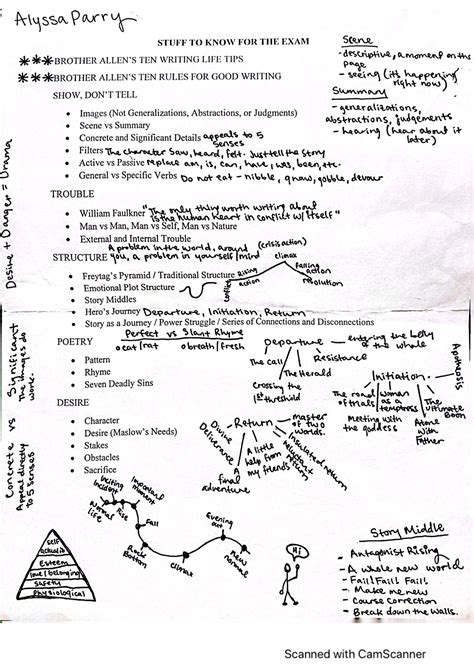 Alyssa Parry
STUFF TO KNOW FOR THE EXAM
***BROTHER ALLEN'S TEN WRITING LIFE TIPS
***BROTHER ALLEN'S TEN RULES FOR GOOD WRITING
Scene
- descriptive, a moment on the
page
- seeing (it's happening
right now)
Summary
- generalizations,
abstractions, judgements
- hearing (hear about it
later)
SHOW, DON'T TELL
• Images (Not Generalizations, Abstractions, or Judgments)
• Scene vs Summary
• Concrete and Significant Details appeals to 5
senses
• Filters The character saw, heard, felt. Just tell the story
• Active vs Passive replace am, is, can, have, was, been, etc.
• General vs Specific Verbs Do not eat - nibble, gnaw, gobble, devour
Desire + Danger = Drama
TROUBLE
• William Faulkner "The only thing worth writing about
is the human heart in conflict w/ itself"
• Man vs Man, Man vs Self, Man vs Nature
• External and Internal Trouble
A problem in the world, around
you, a problem in yourself/mind
(crisis action)
climax
STRUCTURE
• Freytag's Pyramid / Traditional Structure
conflict
Rising
action
falling
action
resolution
• Emotional Plot Structure
• Story Middles
• Hero's Journey Departure, Initiation, Return
• Story as a Journey / Power Struggle / Series of Connections and Disconnections
Concrete vs Significant
Appeal directly
to 5 senses
The images do
work.
POETRY
Perfect vs Slant Rhyme
o eat/rat o breath/fresh
• Pattern
• Rhyme
• Seven Deadly Sins
Departure
entering the belly
of the whale
The call
Resistance
The Herald
Crossing the
1st threshold
Initiation
Apotheosis
The road
of trials
woman
as a
temptress
The
ultimate
Boon
Meeting with
the goddess
Atone
with
Father
DESIRE
• Character
• Desire (Maslow's Needs)
• Stakes
• Obstacles
• Sacrifice
Return
master of
two
worlds.
Divine
Deliverance
A little
help from
my friends
reluctant
return
A
final
adventure
Normal
life
Inciting
incident
Rise
Important
moment
Fall
Rock
Bottom
Climax
Evening
out
New
normal
Self
Actualiz
Esteem
love/belonging
safety
Physiological
Hi
Story Middle
- Antagonist Rising
- A whole new world
- Fail! Fail! Fail!
- Make me new
- Course Correction
- Break down the walls.
Scanned with CamScanner